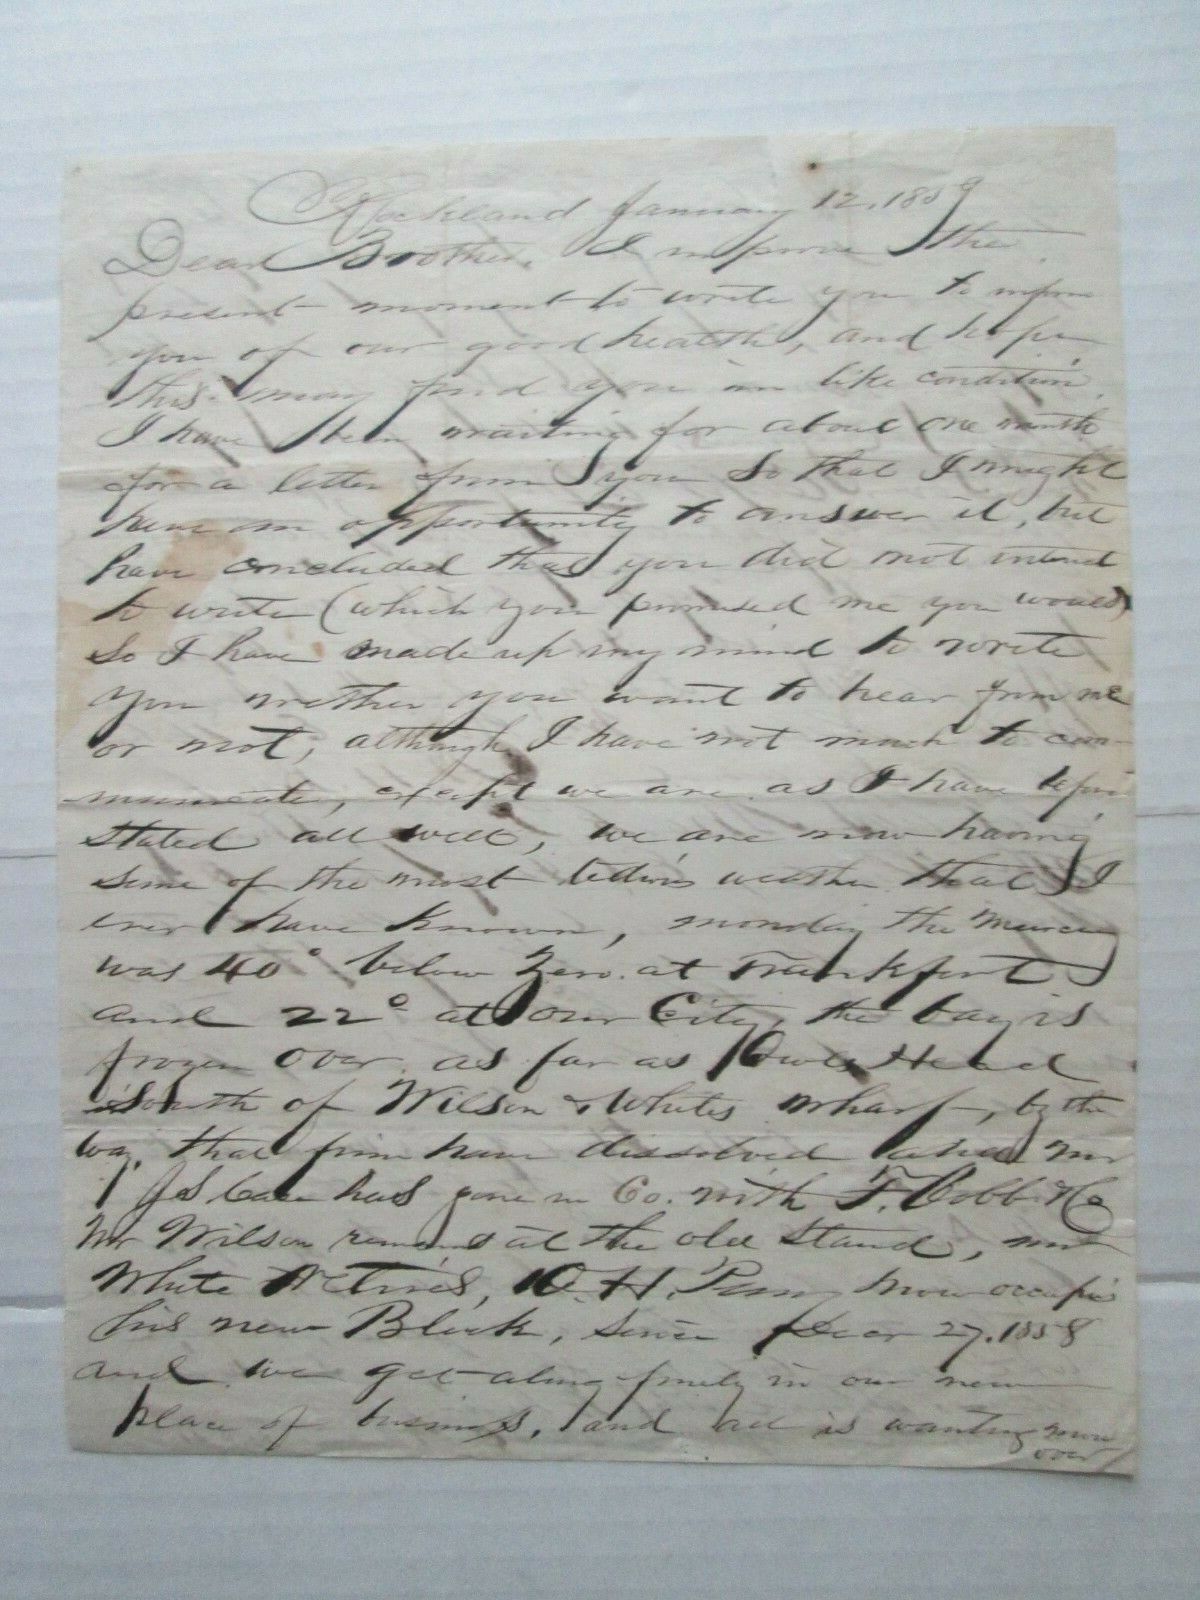 Rockland January 12, 1859
Dear Brother, I improve the
present moment to write you to inform
you of our good health, and hope
this may find you in like condition,
I have been waiting for about one month
for a letter from you So that I might
have an opportunity to answer it, but
have concluded that you did not intend
to write (which you promised me you would)
So I have made up my mind to write
you wether you want to hear from me
or not, although I have not much to com-
municate, except we are as I have before
stated all well, we are now having
some of the most tedious weather that I
ever have known, monday the Mercury
was 40° below Zero at Frankfort
and 22° at Our City, the bay is
frozen over as far as Owls Head
South of Wilson & Whites wharf, by the
way, that firm have dissolved and Mr
has gone in Co. with F. Cobb & Co
Mr Wilson remains at the old Stand, Mr
White Retires, O. H. Perry now occupies
his new Block, since Decr 27, 1858
and we get along finely in our new
place of business, and all is wanting now
over